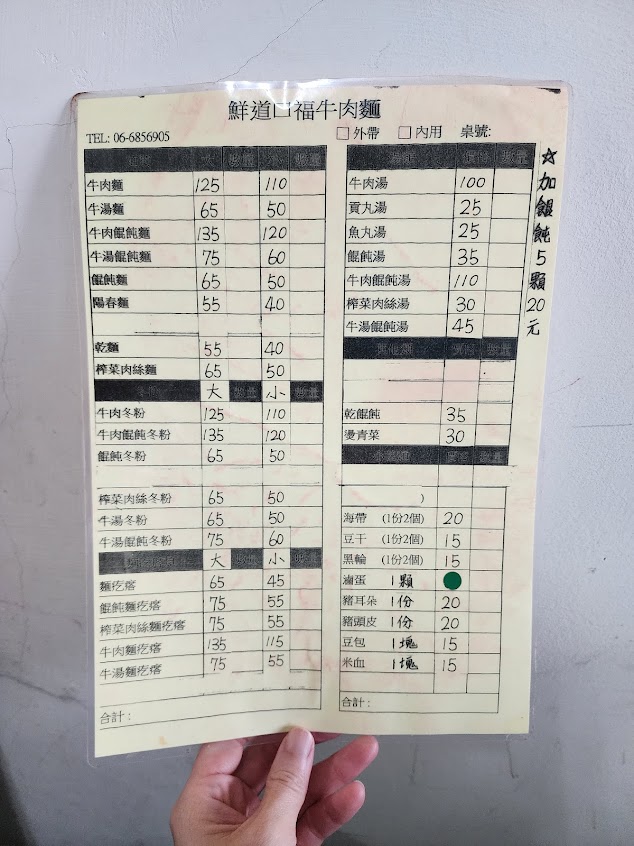 鮮道口福牛肉麵
TEL: 06-6856905
□外帶 □內用 桌號:
大 數量 小 數量
牛肉麵 125 110
牛湯麵 65 50
牛肉餛飩麵 135 120
牛湯餛飩麵 75 60
餛飩麵 65 50
陽春麵 55 40
乾麵 55 40
榨菜肉絲麵 65 50
大 數量 小 數量
牛肉冬粉 125 110
牛肉餛飩冬粉 135 120
餛飩冬粉 65 50
榨菜肉絲冬粉 65 50
牛湯冬粉 65 50
牛湯餛飩冬粉 75 60
大 數量 小 數量
麵疙瘩 65 45
餛飩麵疙瘩 75 55
榨菜肉絲麵疙瘩 75 55
牛肉麵疙瘩 135 115
牛湯麵疙瘩 75 55
合計:
湯類 價格 數量
牛肉湯 100
貢丸湯 25
魚丸湯 25
餛飩湯 35
牛肉餛飩湯 110
榨菜肉絲湯 30
牛湯餛飩湯 45
其他類 價格 數量
乾餛飩 35
燙青菜 30
價格 數量
)
海帶 (1份2個) 20
豆干 (1份2個) 15
黑輪 (1份2個) 15
滷蛋 1顆
豬耳朵 1份 20
豬頭皮 1份 20
豆包 1塊 15
米血 1塊 15
合計:
☆加餛飩5顆20元